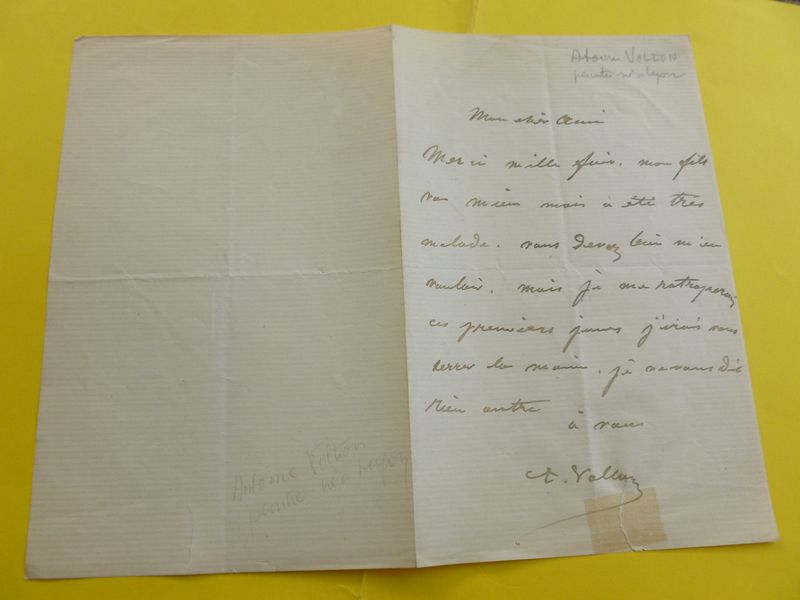 Antoine Vollon
peintre né a Lyon
Atoine VOLLON
peintre né a Lyon
Mon cher Ami
Merci mille fois. mon fils
va mieux mais à été très
malade. vous devez bien m'en
vouloir. mais je me ratraperai
ces premiers jours j'irais vous
serrer la main. je ne vous dis
rien autre
à vous
A. Vollon